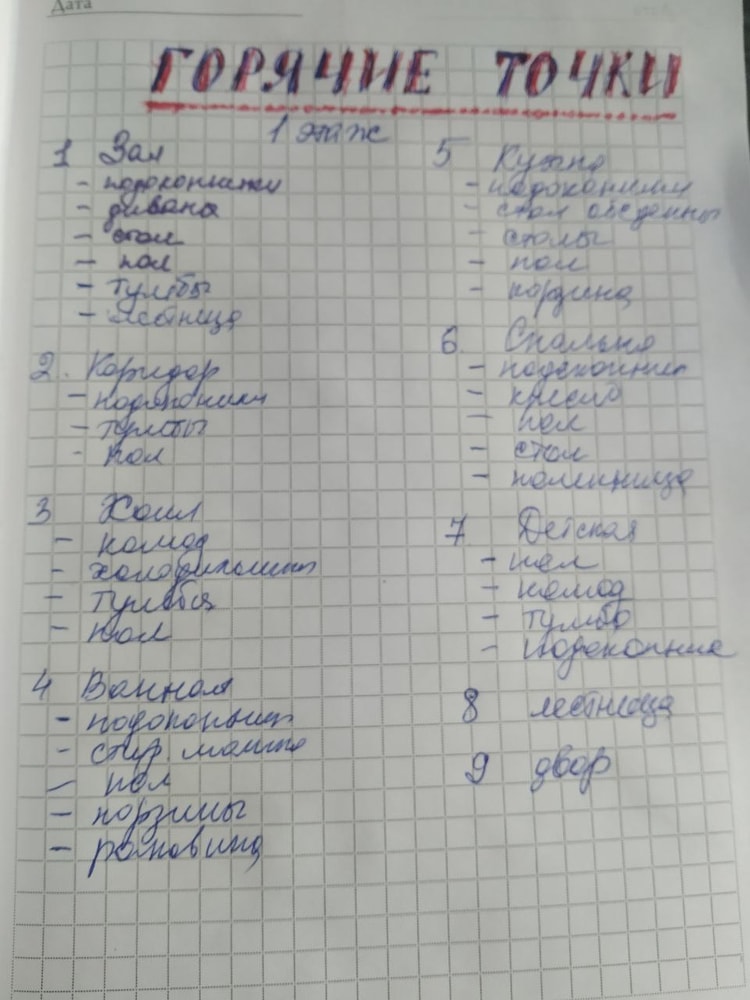 Дата
ГОРЯЧИЕ ТОЧКИ
1 этаж
1 Зал
- подоконники
- дивана
- стол
- пол
- тумбы
- лестница
2. Коридор
- подоконники
- тумбы
- пол
3 Холл
- комод
- холодильник
- тумбы
- пол
4 Ванная
- подоконник
- стир. машина
- пол
- корзины
- раковина
5 Кухня
- подоконники
- стол обеденны
- столы
- пол
- корзина
6. Спальня
- подоконник
- кресло
- пол
- стол
- поленница
7 Детская
- пол
- комод
- тумба
- подоконник
8 лестница
9 двор